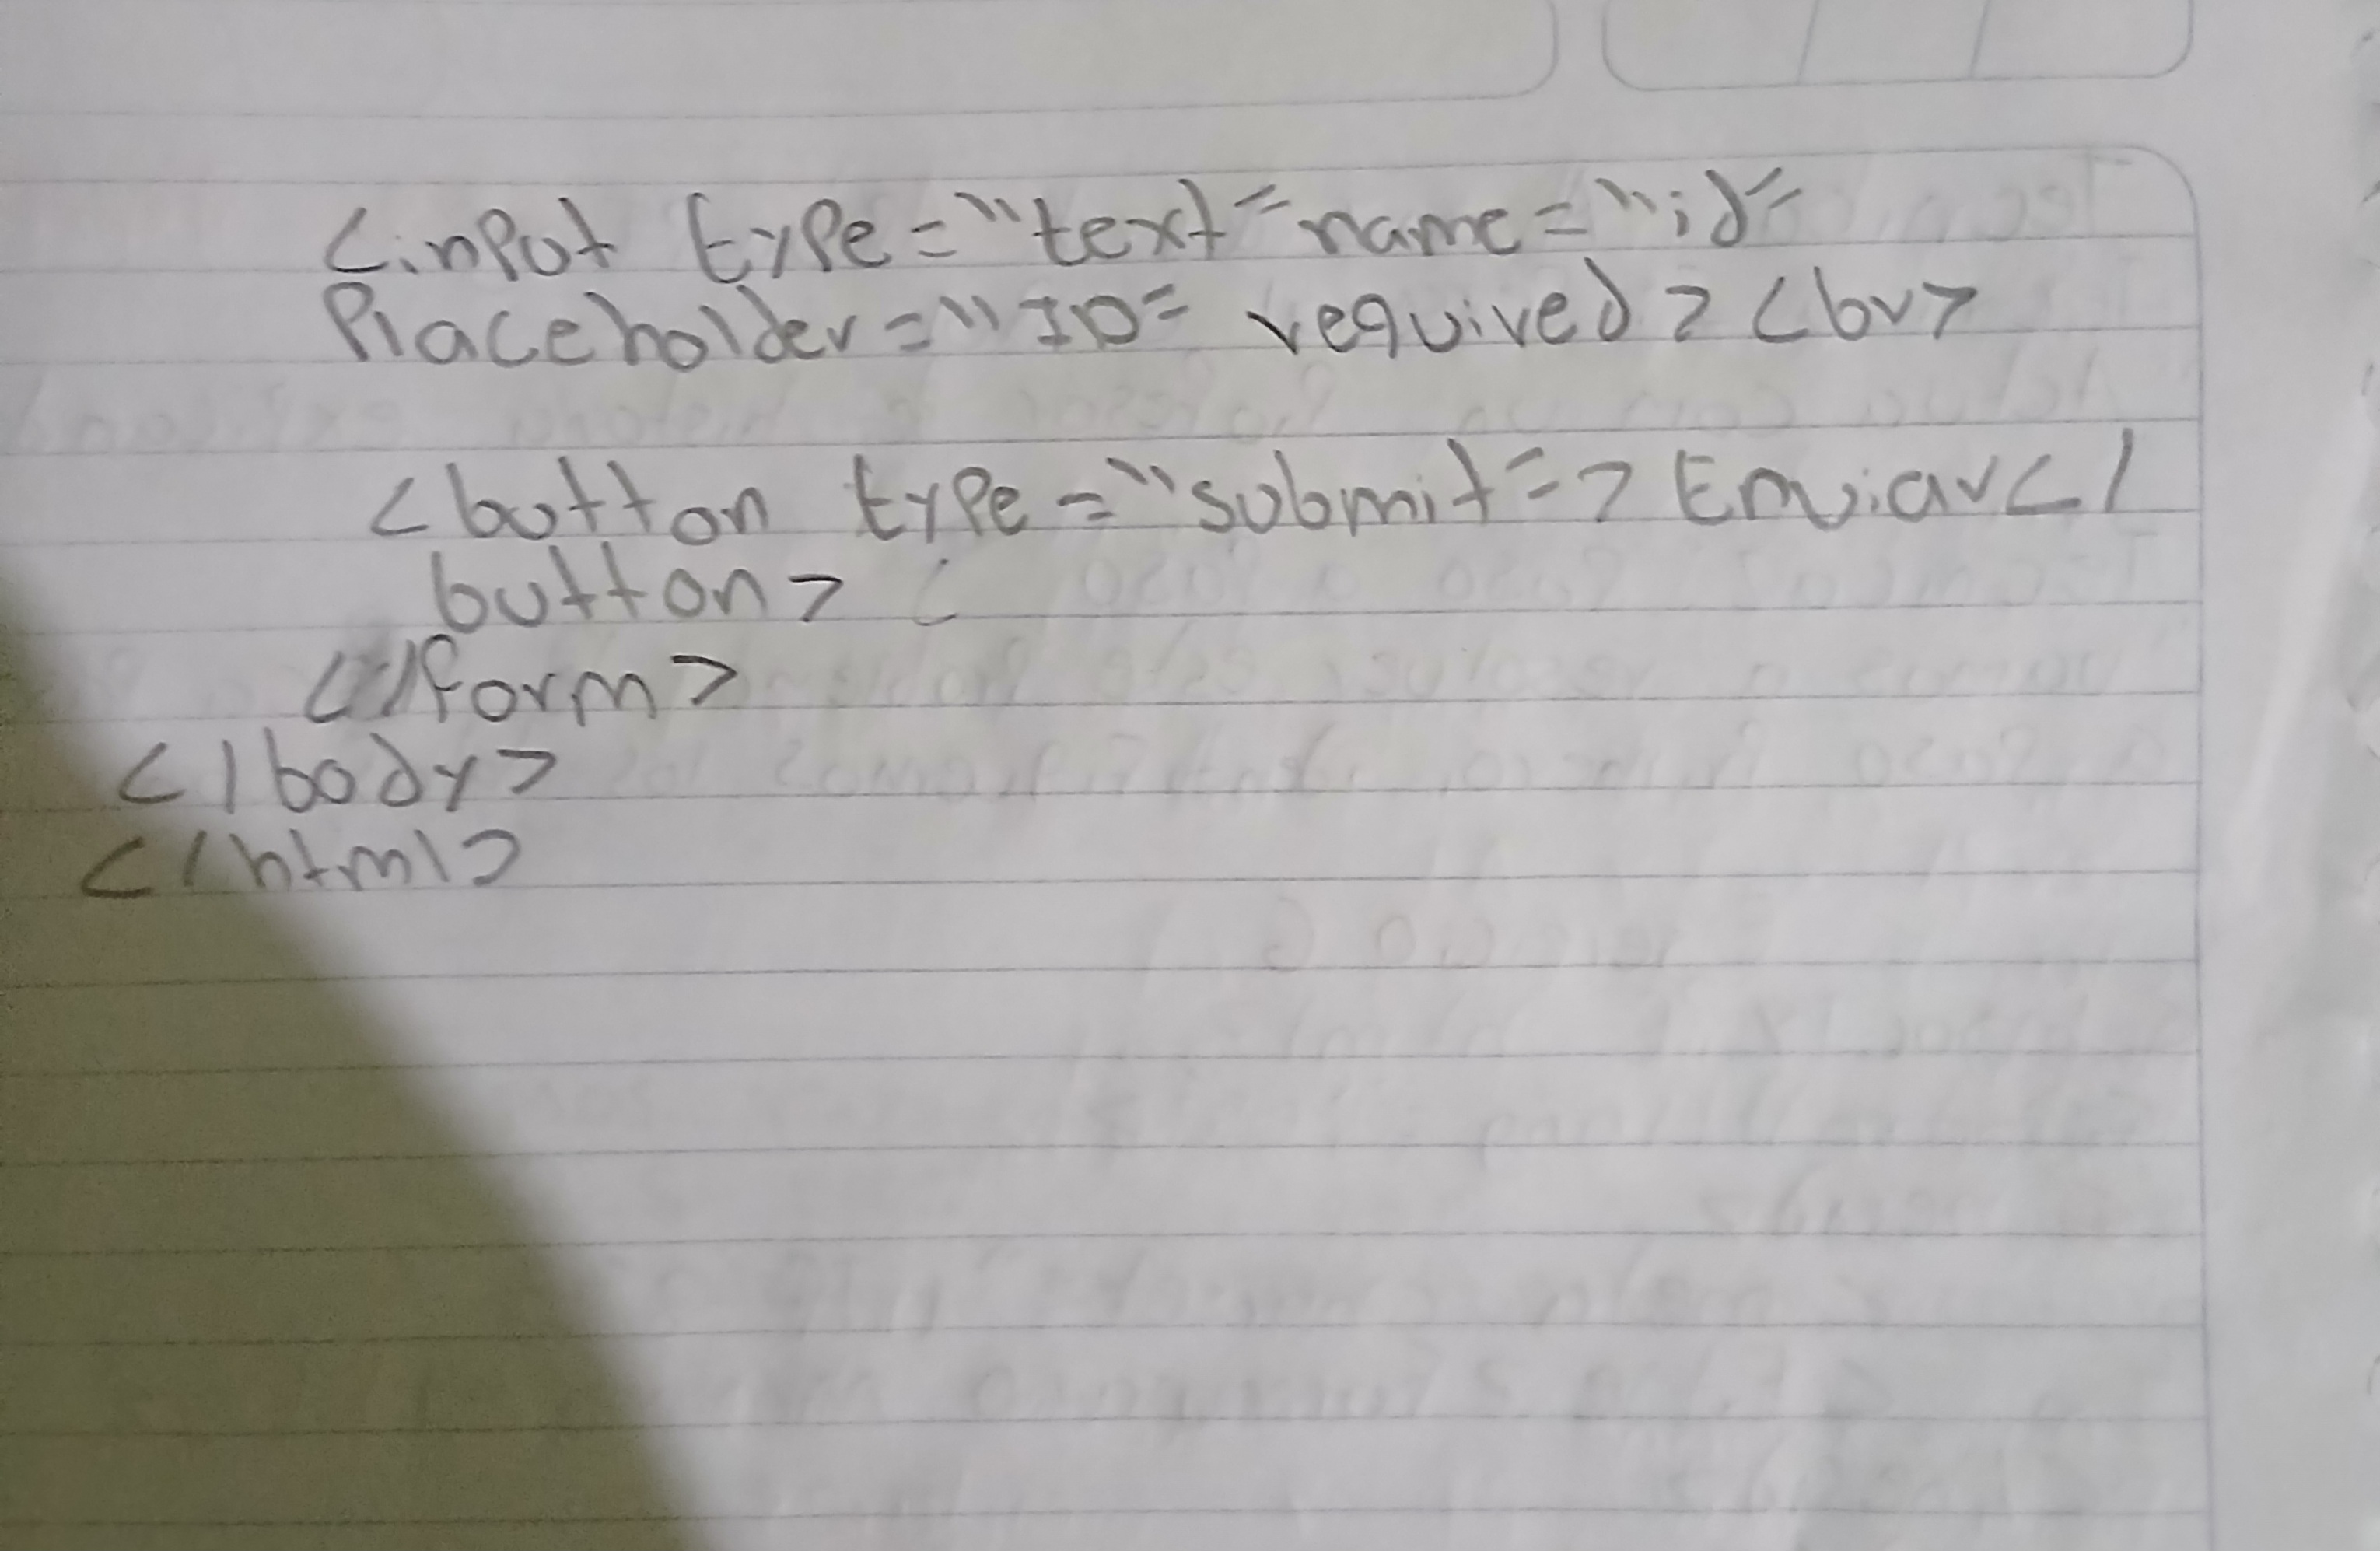 <input type="text" name="id"
Placeholder="ID" required> <br>
<button type="submit"> Enviar</
button>
</form>
</body>
</html>